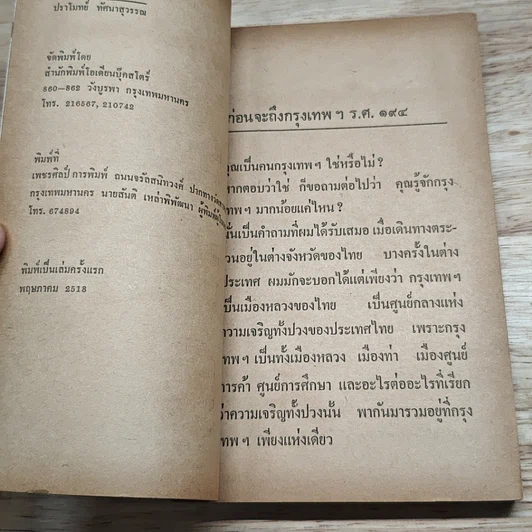 ปราโมทย์ ทัศนาสุวรรณ
จัดพิมพ์โดย
สำนักพิมพ์โอเดียนบุ๊คสโตร์
860—862 วังบูรพา กรุงเทพมหานคร
โทร. 216567, 210742
พิมพ์ที่
เพชรศิลป์การพิมพ์ ถนนจรัลสนิทวงศ์ ปากทาง
กรุงเทพมหานคร นายสันติ เหล่าพิพัฒนา ผู้พิมพ์
โทร. 674894
พิมพ์เป็นเล่มครั้งแรก
พฤษภาคม 2518
ก่อนจะถึงกรุงเทพ ฯ ร.ศ. ๑๙๔
คุณเป็นคนกรุงเทพ ฯ ใช่หรือไม่ ?
ากตอบว่าใช่ ก็ขอถามต่อไปว่า คุณรู้จักกรุง
ทพ ฯ มากน้อยแค่ไหน ?
นั่นเป็นคำถามที่ผมได้รับเสมอ เมื่อเดินทางตระ-
วนอยู่ในต่างจังหวัดของไทย บางครั้งในต่าง
ประเทศ ผมมักจะบอกได้แต่เพียงว่า กรุงเทพ ฯ
ป็นเมืองหลวงของไทย เป็นศูนย์กลางแห่ง
ความเจริญทั้งปวงของประเทศไทย เพราะกรุง
ทพ ฯ เป็นทั้งเมืองหลวง เมืองท่า เมืองศูนย์
การค้า ศูนย์การศึกษา และอะไรต่ออะไรที่เรียก
ว่าความเจริญทั้งปวงนั้น พากันมารวมอยู่ที่กรุง
ทพ ฯ เพียงแห่งเดียว